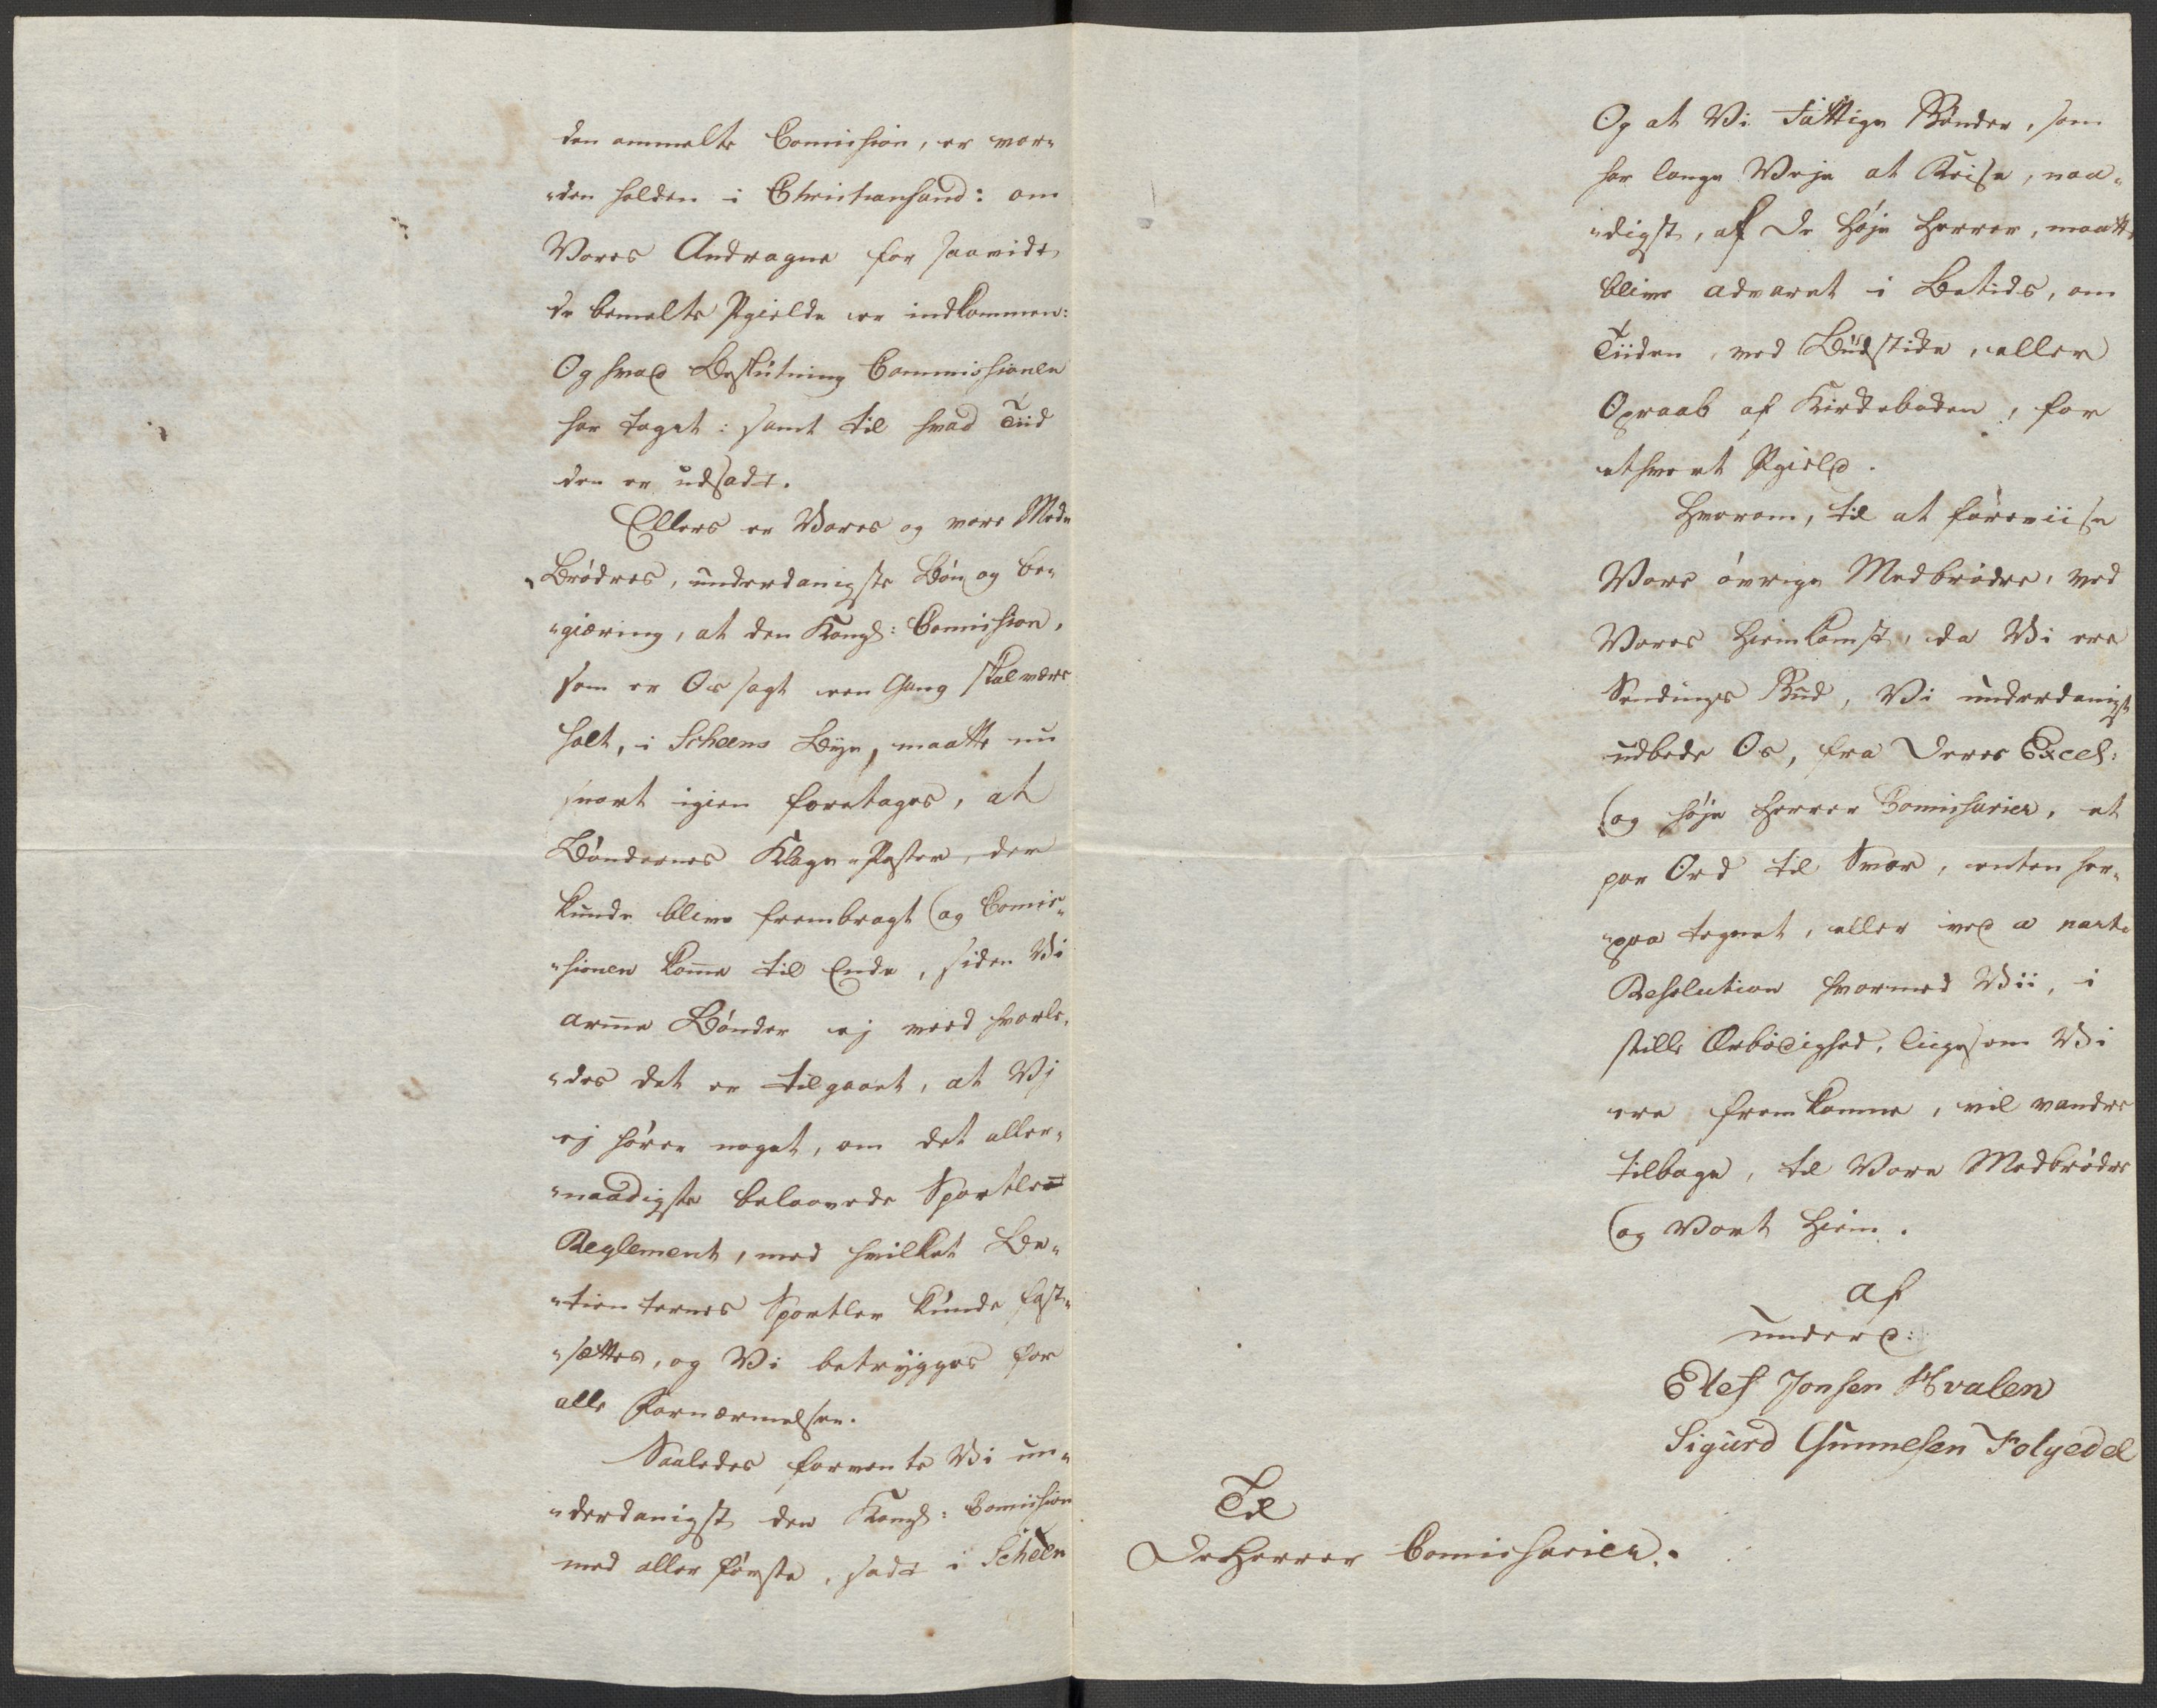 den ommelte Comission, er vor-
"den holden i Christiansand: om
Vores Andragne for saavidt
de bemelte Pgielde er indkommen:
Og hvad Beslutning Commissionen
har taget: samt til hvad Tiid
den er udsadt.
Ellers er Vores og vore Med
Brødres, underdanigste Bøn og be-
"giæring, at den Kongl: Comission,
som er Os sagt een Gang skal være
holt, i Scheens Bye, maatte nu
snart igien foretages, at
Bøndernes Klage-Poster, der
kunde blive frembragt (og Comis-
"sionen komme til Ende, siden Vi
arme Bønder ej veed hvorle-
"des det er tilgaaet, at Vj
ej hører noget, om det aller-
"naadigste belovede Sportler
Reglement, med hvilket Be-
"tienternes Sportler kunde fast-
"sættes, og Vi betrygges for
alle Fornærmelser.
Saaledes forvente Vi un-
"derdanigst den Kongl: Comission
med aller første, sadt i Scheen
Og at Vi Fattige Bønder, som
har lange Veje at Reise, naa-
"digst, af De Høje Herrer, maatte
blive advaret i Betids, om
Tiiden, ved Budstike, eller
Opraab af Kirkebaken, for
ethvert Pgield.
Hvorom, til at foreviise
Vore øvrige Medbrødre, ved
Vores Hiemkomst, da Vi ere
Sendinges Bud, Vi underdanigst
udbede Os, fra Deres Excel:
(og høje Herrer Comissarier, et
par Ord til Svar, enten her-
"paa tegnet, eller ved a parte
Resolution hvormed Vii, i
stille Ærbødighed, liigesom Vi
ere fremkomne, vil vandre
tilbage, til Vore Medbrødre
(og Vort Hiem.
af
underd:
Etef Jonsen Hvalen
Sigurd Gunnesen Folgedel
Til
De Herrer Comissarier.